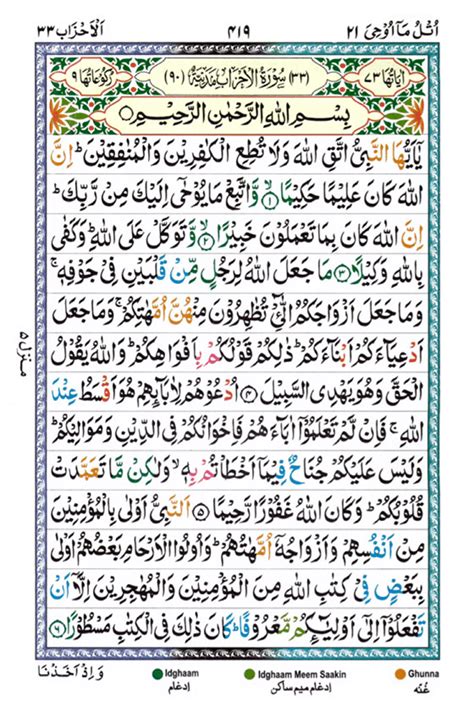 اُتْلُ مَآ اُوْحِیَ ٢١ ٤١٩ اَلْاَحْزَاب ٣٣
اٰيَاتُهَا ٧٣ (٣٣) سُوْرَةُ الْاَحْزَابِ مَدَنِيَّةٌ (٩٠) رُكُوْعَاتُهَا ٩
بِسْمِ اللهِ الرَّحْمٰنِ الرَّحِيْمِ
يٰۤاَيُّهَا النَّبِىُّ اتَّقِ اللهَ وَلَا تُطِعِ الْكٰفِرِيْنَ وَالْمُنٰفِقِيْنَ ؕ اِنَّ
اللهَ كَانَ عَلِيْمًا حَكِيْمًا ۙ﴿١﴾ وَّاتَّبِعْ مَا يُوْحٰٓى اِلَيْكَ مِنْ رَّبِّكَ ؕ
اِنَّ اللهَ كَانَ بِمَا تَعْمَلُوْنَ خَبِيْرًا ۙ﴿٢﴾ وَّتَوَكَّلْ عَلَى اللهِ ؕ وَكَفٰى
بِاللهِ وَكِيْلًا ﴿٣﴾ مَا جَعَلَ اللهُ لِرَجُلٍ مِّنْ قَلْبَيْنِ فِىْ جَوْفِهٖ ۚ
وَمَا جَعَلَ اَزْوَاجَكُمُ الّٰٓـِٔىْ تُظٰهِرُوْنَ مِنْهُنَّ اُمَّهٰتِكُمْ ۚ وَمَا جَعَلَ
اَدْعِيَآءَكُمْ اَبْنَآءَكُمْ ؕ ذٰلِكُمْ قَوْلُكُمْ بِاَفْوَاهِكُمْ ؕ وَاللهُ يَقُوْلُ
الْحَقَّ وَهُوَ يَهْدِى السَّبِيْلَ ﴿٤﴾ اُدْعُوْهُمْ لِاٰبَآئِهِمْ هُوَ اَقْسَطُ عِنْدَ
اللهِ ۚ فَاِنْ لَّمْ تَعْلَمُوْۤا اٰبَآءَهُمْ فَاِخْوَانُكُمْ فِى الدِّيْنِ وَمَوَالِيْكُمْ ؕ
وَلَيْسَ عَلَيْكُمْ جُنَاحٌ فِيْمَاۤ اَخْطَاْتُمْ بِهٖ ۙ وَلٰكِنْ مَّا تَعَمَّدَتْ
قُلُوْبُكُمْ ؕ وَكَانَ اللهُ غَفُوْرًا رَّحِيْمًا ﴿٥﴾ اَلنَّبِىُّ اَوْلٰى بِالْمُؤْمِنِيْنَ
مِنْ اَنْفُسِهِمْ وَاَزْوَاجُهٗۤ اُمَّهٰتُهُمْ ؕ وَاُولُوا الْاَرْحَامِ بَعْضُهُمْ اَوْلٰى
بِبَعْضٍ فِىْ كِتٰبِ اللهِ مِنَ الْمُؤْمِنِيْنَ وَالْمُهٰجِرِيْنَ اِلَّاۤ اَنْ
تَفْعَلُوْۤا اِلٰٓى اَوْلِيٰٓئِكُمْ مَّعْرُوْفًا ؕ كَانَ ذٰلِكَ فِى الْكِتٰبِ مَسْطُوْرًا ﴿٦﴾
منزل ٥
وَ اِذْ اَخَذْنَا
Idghaam Idghaam Meem Saakin Ghunna
اِدغام اِدغام میم ساکن غُنّه